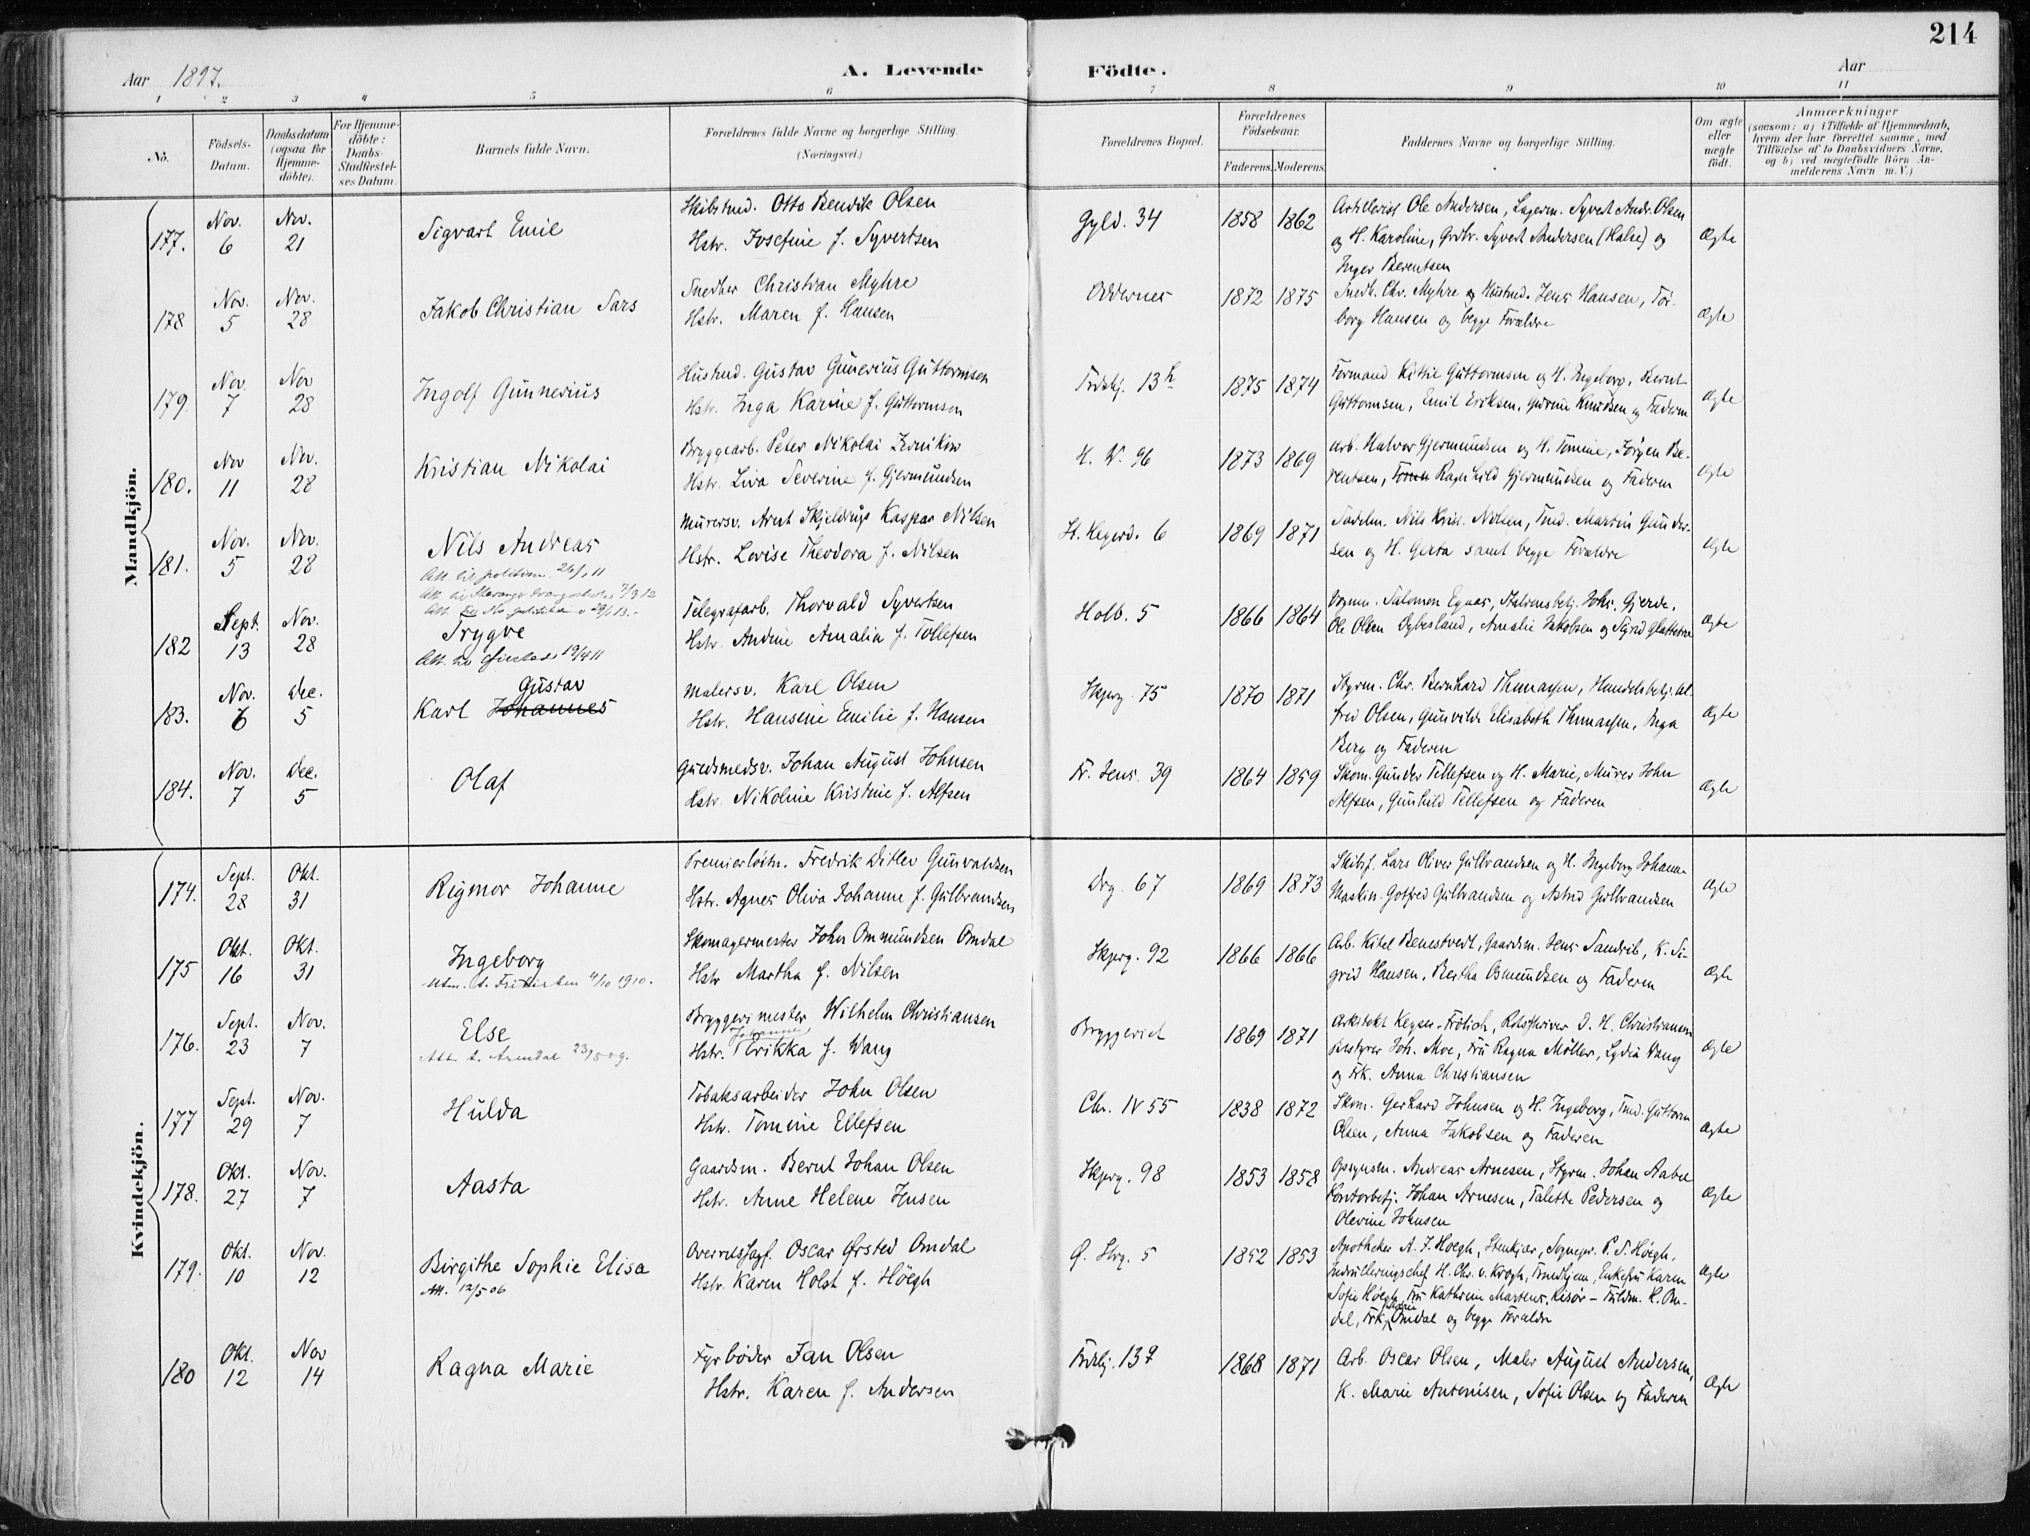 214
Aar 1897.
A. Levende Födte.
Aar
1 2 3 4 5 6 7 8 9 10 11
No.
Födsels-Datum.
Daabsdatum (ogsaa for Hjemme-döbte).
For Hjemme-döbte: Daabs-Stadfæstel-ses Datum.
Barnets fulde Navn.
Forældrenes fulde Navne og borgerlige Stilling. (Næringsvei.)
Forældrenes Bopæl.
Forældrenes Födselsaar.
Faderens. Moderens.
Faddernes Navne og borgerlige Stilling.
Om ægte eller uægte födt.
Anmærkninger
(saasom: a) i Tilfælde af Hjemmedaab, hvem der har forrettet samme, med Tilföielse af to Daabsvidners Navne, og b) ved uægtefödte Börn An-melderens Navn m. V.)
Mandkjön.
177. Nov. 6 Nov. 21 Sigvart Emil
Skibstmd. Otto Bendik Olsen
Hstr. Josefine f. Syvertsen
Gyld. 34 1858 1862
Artillerist Ole Andersen, Lagerm. Syvert Andr. Olsen
og H. Karoline, Grdbr. Syvert Andersen (Halse) og
Inger Berentsen
Ægte
178 Nov. 5 Nov. 28 Jakob Christian Sars
Snedker Christian Myhre
Hstr. Maren f. Hansen
Oddernes 1872 1875
Snedk. Chr. Myhre og Hustmd. Jens Hansen, Tor-
borg Hansen og begge Forældre
Ægte
179. Nov. 7 Nov 28 Ingolf Gunnerius
Hustmd. Gustav Gunerius Guttormsen
Hstr. Inga Karine f. Guttormson
1875 1874
Formand Kittil Guttormsen og H. Ingeborg, Bernt
Guttormsen, Emil Eriksen, Gurine Knudsen og Faderen
Ægte
180. Nov 11 Nov. 28 Kristian Nikolai
Bryggearb. Peter Nikolai
Hstr. Liva Severine f. Gjermundsen
H. V. 96 1873 1869
Arb. Halvor Gjermundsen og H. Tomine, Jørgen Be-
rentsen, Ragnhild Gjermundsen og Faderen
Ægte
181. Nov. 5 Nov. 28 Nils Andreas
Att. til politiet 26/1 11
Murersv. Arnt Skjeldrup Kaspar Nilsen
Hstr. Lovise Theodora f. Nilsen
6 1869 1871
Sadelm. Nils Krist. Nielsen, Tmd. Martin Gunder-
sen og H. Gerta samt begge Forældre
Ægte
182 Sept. 13 Nov. 28 Trygve
Att. til 19/4 11
Telegrafarb. Thorvald Syvertsen
Hstr. Andine Amalia f. Tollefsen
Holb. 5 1866 1864
Vognm. Salomon Egaas, Joh. Gjerde,
Ole Olsen Dybesland, Amalie Jakobsen og Sigrid
Ægte
183. Nov. 6 Dec. 5 Karl Johannes Gustav
Malersv. Karl Olsen
Hstr. Hansine Emilie f. Hansen
Skperg. 75 1870 1871
Styrm. Chr. Bernhard Thomassen, Handelsbetj. Al-
fred Olsen, Gunvilda Elisabeth Thomassen, Inga
Berg og Faderen
Ægte
184. Nov. 7 Dec. 5 Olaf
Guldsmedsv. Johan August Johnsen
Hstr. Nikoline Kristine f. Alfsen
Fr. Jens. 39 1864 1859
Skom. Gunder Tellefsen og H. Marie, Murer John
Alfsen, Gunhild Tellefsen og Faderen
Ægte
Kvindekjön.
174. Sept. 28 Okt. 31 Rigmor Johanne
Premierløitn. Fredrik Ditlev Gunvaldsen
Hstr. Agnes Oliva Johanne f. Gulbrandsen
Drg. 67 1869 1873
Skibsf. Lars Oliver Gulbrandsen og H. Ingeborg Johanne
Maskin. Gotfred Gulbrandsen og Astrid Gulbrandsen
Ægte
175 Okt. 16 Okt. 31 Ingeborg
Utm. t. Frikirken 4/10 1910.
Skomagermester John Omundsen Omdal
Hstr Martha f. Nilsen
Skperg. 92 1866 1866
Arb. Kitel Benestvedt, Gaardsm. Jens Sandvik, K. Si-
grid Hansen, Bertha Osmundsen og Faderen
Ægte
176. Sept. 23 Nov. 7 Else
Att. t. Arendal 23/8 09.
Bryggerimester Wilhelm Christiansen
Hstr. Johanne Thrikka f. Wang
Bryggeriet 1869 1871
Arkitekt Keyser-Frølich, D. H. Christiansen
Bestyrer Joh. Moe, Fru Ragna Möller, Lydia Wang
og Frk. Anna Christiansen
Ægte
177 Sept. 29 Nov. 7 Hulda
Tobaksarbeider John Olsen
Hstr. Tomine Ellefsen
Chr. IV 55 1838 1872
Skom. Gerhard Johnsen og H. Ingeborg, Tmd. Guttorm
Olsen, Anna Jakobsen og Faderen
Ægte
178. Okt. 27 Nov. 7 Aasta
Gaardsm. Bernt Johan Olsen
Hstr. Anne Helene Jensen
Skperg. 98 1853 1858
Opsynsm. Andreas Arnesen, Styrm. Johan Aabel
Kontorbetj. Johan Arnesen, Talette Pedersen og
Olevine Johnsen
Ægte
179. Okt. 10 Nov. 12 Birgithe Sophie Elisa
Att. 12/5 06
Overretssagf. Oscar Ørsted Omdal
Hstr. Karen Holst f. Höegh
Ø. Strg. 5 1852 1853
Apotheker A. F. Hoegh, Stenkjær, Sognepr. P. S. Höegh,
H. Chr. v. Krogh, Trondhjem, Enkefru Karen
Sofie Höegh, Fru Kathrine Martens, Risør – Fuldm. K. Om-
dal, Frk. Omdal og begge Forældre
Ægte
180 Okt. 12 Nov 14 Ragna Marie
Fyrbøder Jan Olsen
Hstr. Karen f. Andersen
1868 1871
Arb. Oscar Olsen, Maler August Andersen,
K. Marie Antonisen, Sofie Olsen og Faderen
Ægte